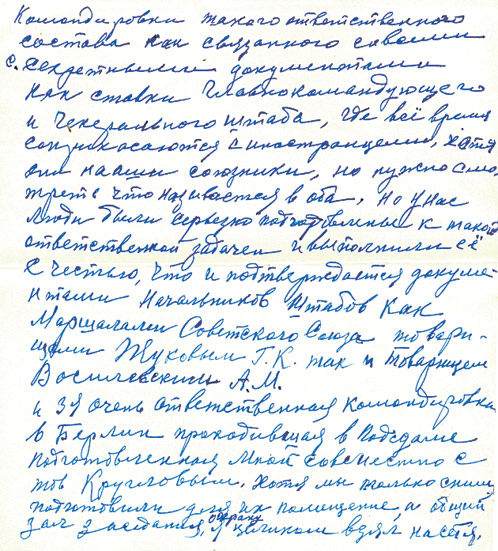 Командировки такого ответственного
состава как связанного с весьма
с. секретными документами
как ставки Главнокомандующего
и Генерального штаба, где всё время
соприкасаются с иностранцами, хотя
они наши союзники, но нужно смо-
треть что называется в оба, но у нас
люди были серьезно подготовленные к такой
ответственной задачей и выполнили её
с честью, что и подтверждается докуме-
нтами Начальников Штабов как
Маршалами Советского Союза товари-
щами Жуковым Г.К. так и товарищем
Восилевским А.М.
и 3я очень ответственная командировка
в Берлин проходившая в Подсдаме
подготовленная мной совместно с
тов Кругловым. Хотя мы только с ним
подготовили для их помещение, а общий
зал заседатся, охрану я целиком взял на себя.